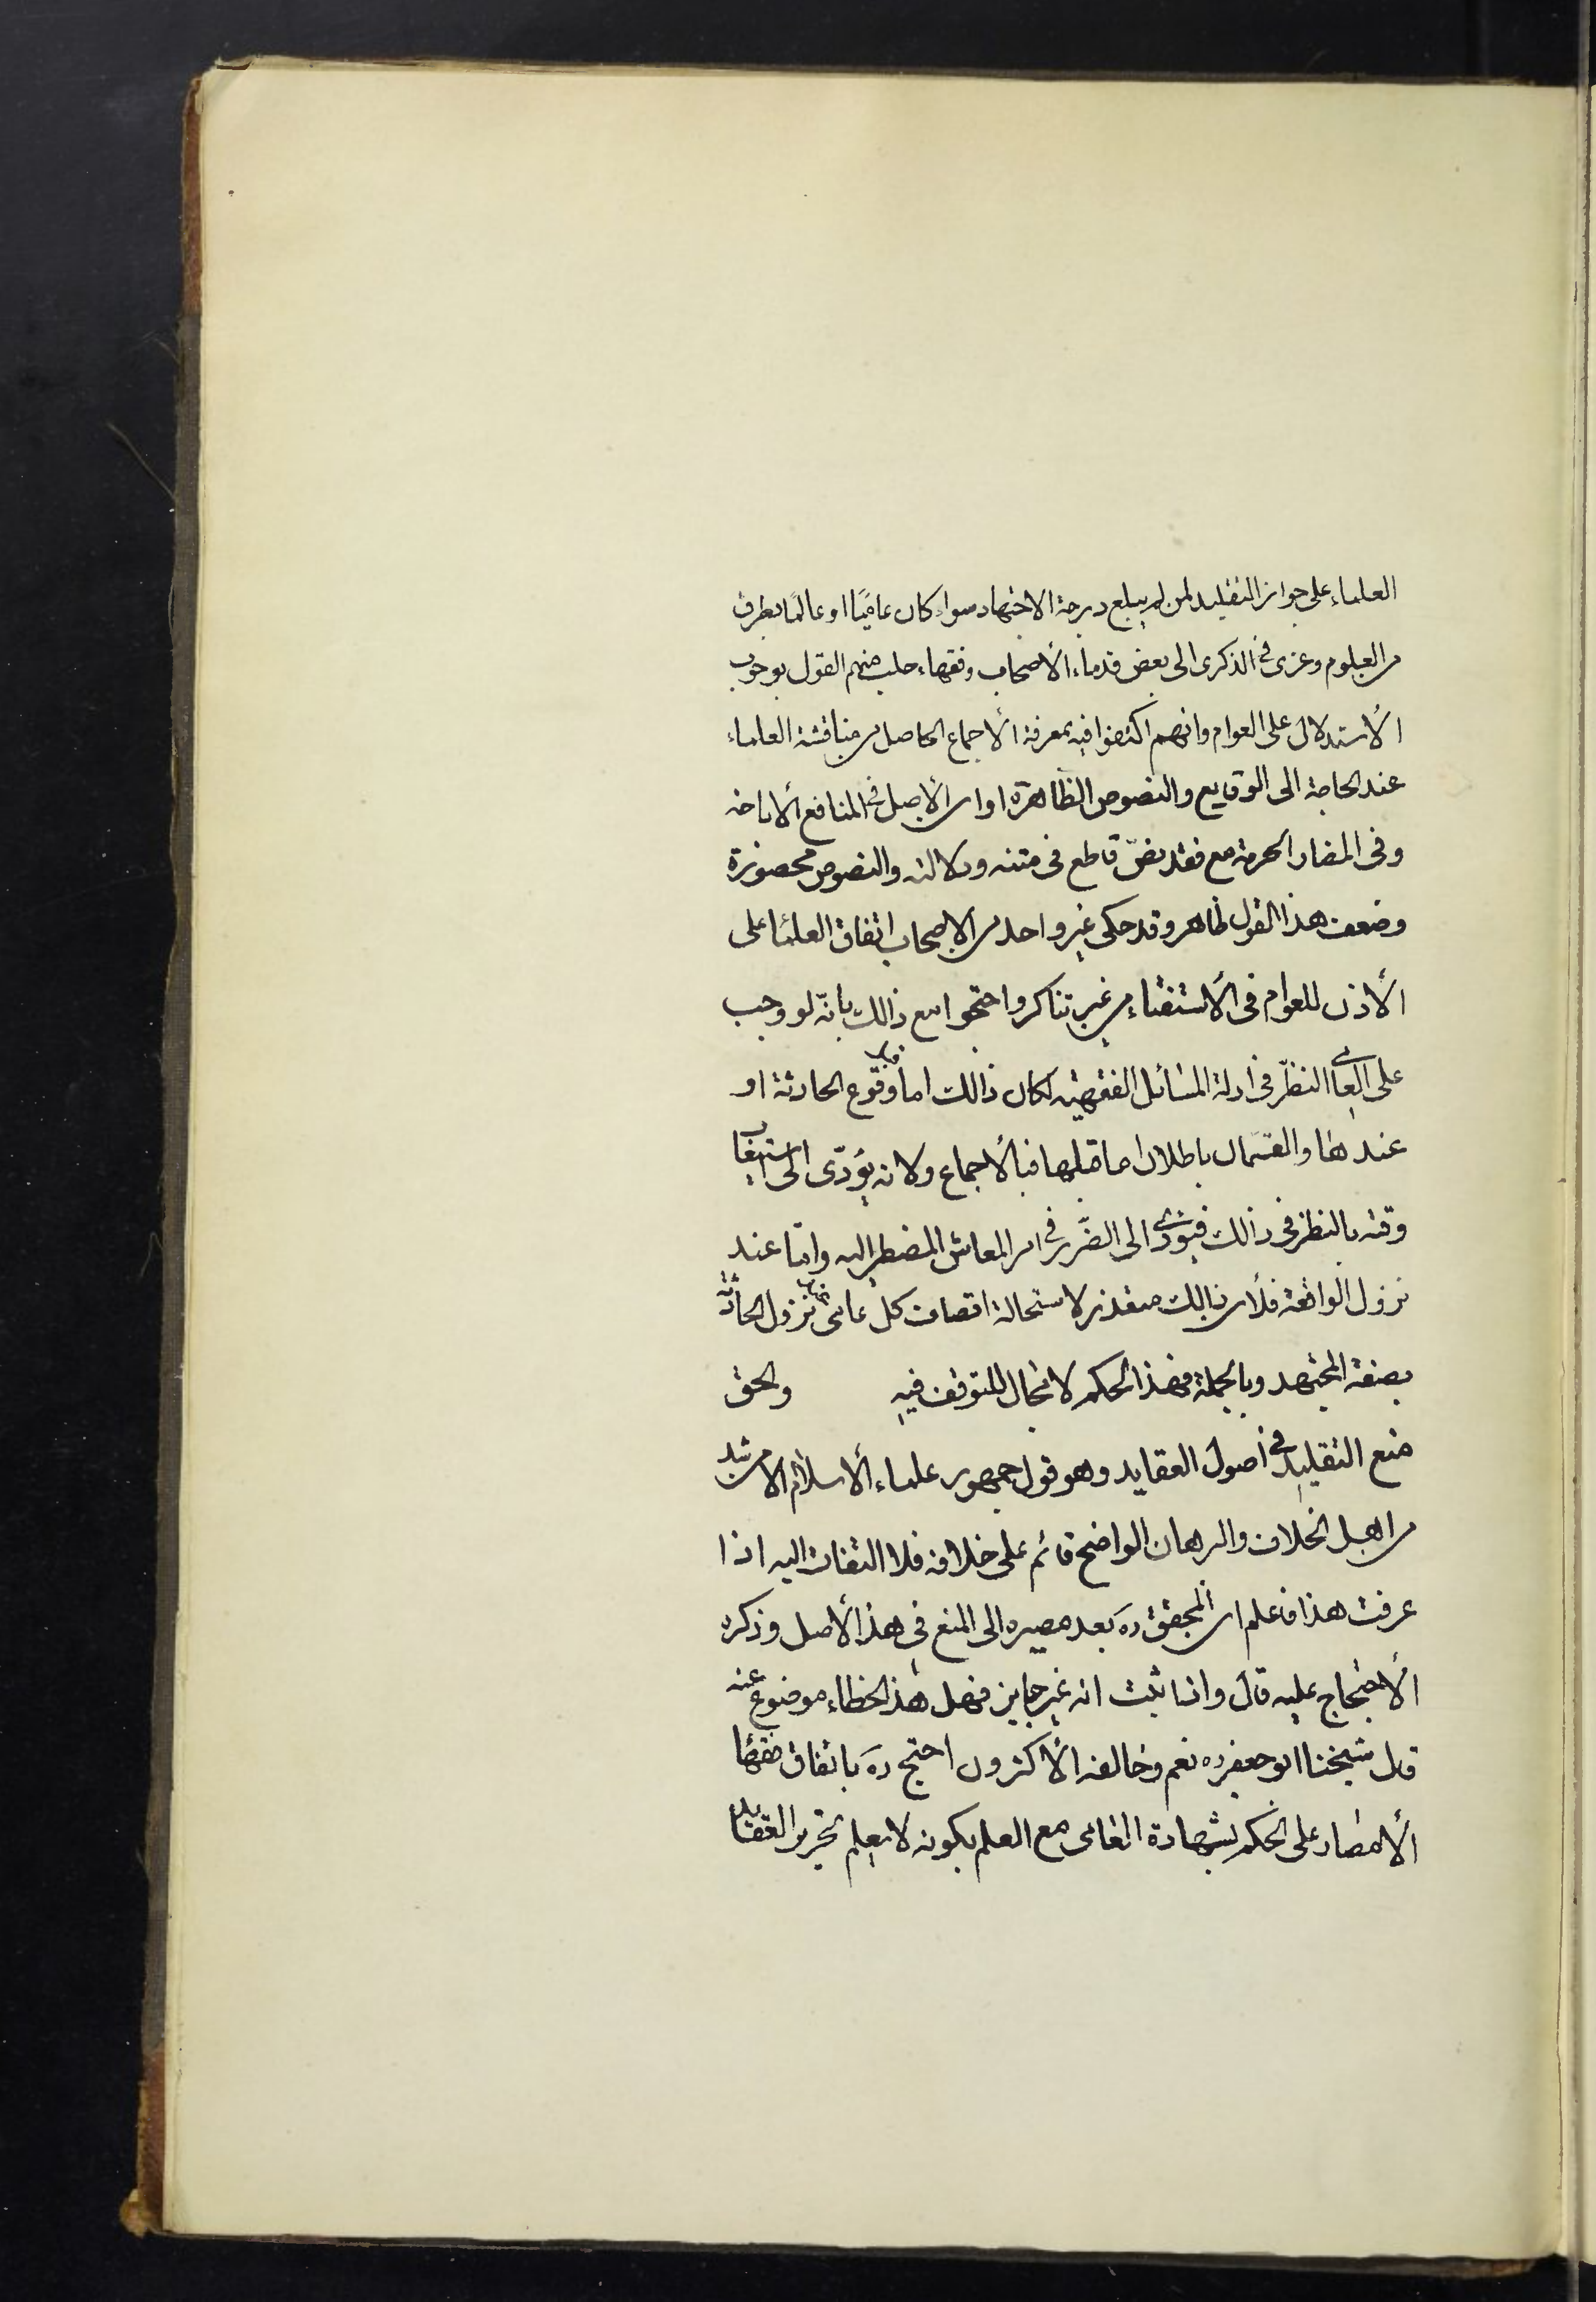 العلماء على جواز التقليد لمن لم يبلغ درجة الاجتهاد سواء كان عاميّا او عالمًا بطرف
من العلوم وعزى فى الذكرى الى بعض قدماء الأصحاب وفقهاء حلب منهم القول بوجوب
الأستدلال على العوام وانهم اكتفوا فيه بمعرفة الأجماع الحاصل من مناقشة العلماء
عند الحاجة الى الوقايع والنصوص الظاهرة او ان الأصل فى المنافع الأباحة
وفى المضار الحرمة مع فقد نصّ قاطع فى متنه ودلالته والنصوص محصورة
وضعف هذا القول ظاهر وقد حكى غير واحد من الاصحاب اتفاق العلماء على
الأذن للعوام فى الأستفتاء من غير تناكر واحتجوا مع ذالك بانّه لو وجب
على العامى النظر فى ادلة المسائل الفقهية لكان ذالك اما قبل وقوع الحادثة او
عندها والقسمان باطلان اما قبلها فبالأجماع ولانه يؤدّى الى استيعاب
وقته بالنظر فى ذالك فيؤدى الى الضّرر فى امر المعاش المضطر اليه وامّا عند
نزول الواقعة فلأن ذالك متعذر لاستحالة اتصاف كل عامى عند نزول الحادثة
بصفة المجتهد وبالجملة فهذا الحكم لا مجال للتوقف فيه والحق
منع التقليد فى أصول العقايد وهو قول جمهور علماء الأسلام الا من شذ
من اهل الخلاف والبرهان الواضح قائم على خلافه فلا التفات اليه اذا
عرفت هذا فاعلم ان المحقق ره بعد مصيره الى المنع فى هذا الأصل وذكره
الأحتجاج عليه قال واذا ثبت انه غير جايز فهل هذا الخطاء موضوع عنه
قال شيخنا ابو جعفر ره نعم وخالفه الأكثرون احتج ره باتفاق فقهاء
الأمصار على الحكم بشهادة العامى مع العلم بكونه لا يعلم تحرير العقايد